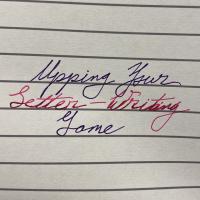 Upping Your
Letter-Writing
Game